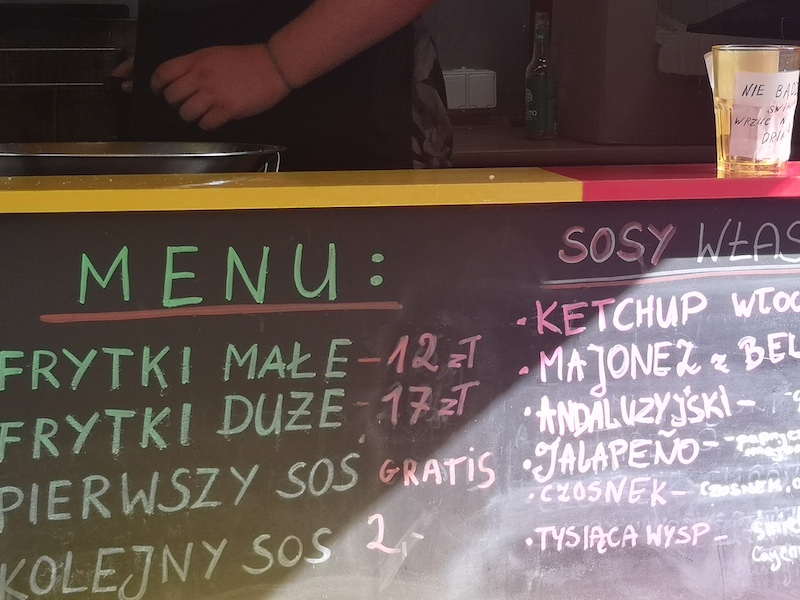 NIE BĄDŹ
WRZUĆ N
MENU:
FRYTKI MAŁE - 12 zł
FRYTKI DUŻE - 17 zł
PIERWSZY SOS GRATIS
KOLEJNY SOS 2,-
SOSY WŁAS
• KETCHUP WŁOS
• MAJONEZ z BEL
• ANDALUZYJSKI -
• JALAPEÑO -
• CZOSNEK - CZOSNEK,
• TYSIĄCA WYSP -